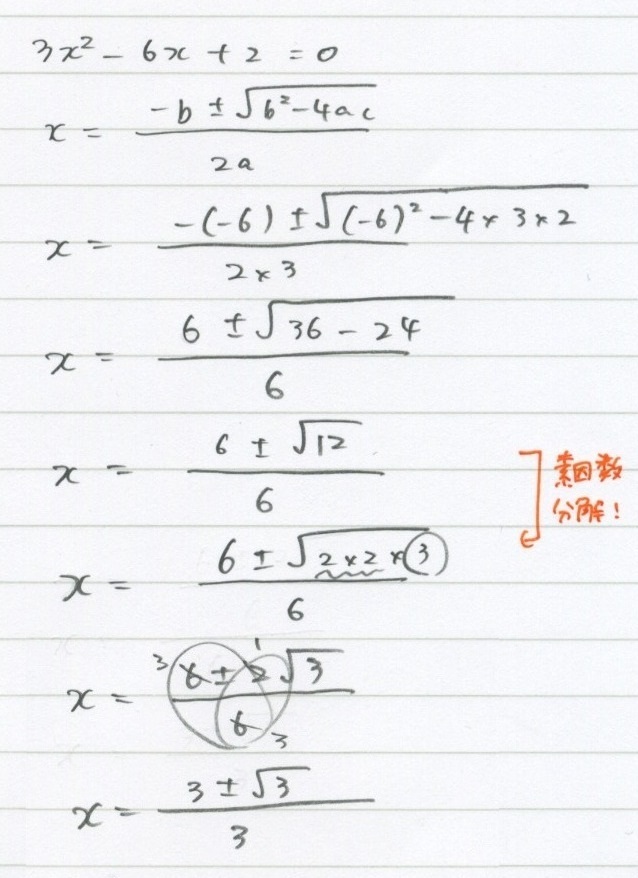 3x² - 6x + 2 = 0
x = (-b ± √(b² - 4ac)) / 2a
x = (-(-6) ± √((-6)² - 4 × 3 × 2)) / (2 × 3)
x = (6 ± √(36 - 24)) / 6
x = (6 ± √12) / 6
素因数
分解!
x = (6 ± √(2 × 2 × 3)) / 6
x = (6 ± 2√3) / 6
3 1 3
x = (3 ± √3) / 3